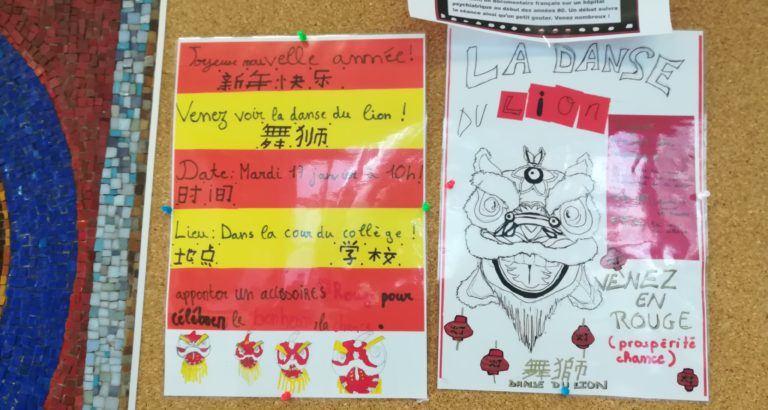 documentaire français sur un hôpital
psychiatrique au début des années 80. Un débat suivra
la séance ainsi qu'un petit gouter. Venez nombreux !
Joyeuse nouvelle année!
新年快乐
Venez voir la danse du lion !
舞狮
Date: Mardi 17 janvier à 10h!
时间
Lieu: Dans la cour du collège !
地点 学校
apporter un accissoires Rouge pour
célébrer le bonheur, la chance.
LA DANSE
DU Lion
VENEZ
EN
ROUGE
(prospérité
chance)
舞獅
DANSE DU LION